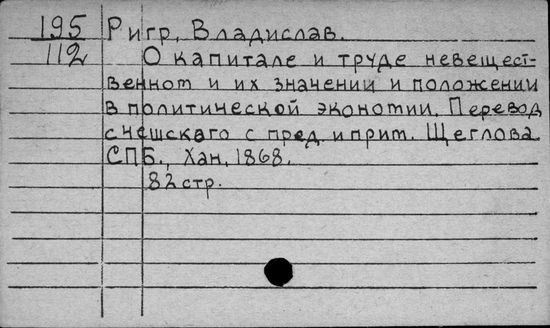 195 Ригр, Владислав.
112 О капитале и труде невещест-
венном и их значении и положении
в политической экономии. Перевод
с чешскаго с пред. и прим. Щеглова.
СПБ., Хан, 1868.
82 стр.